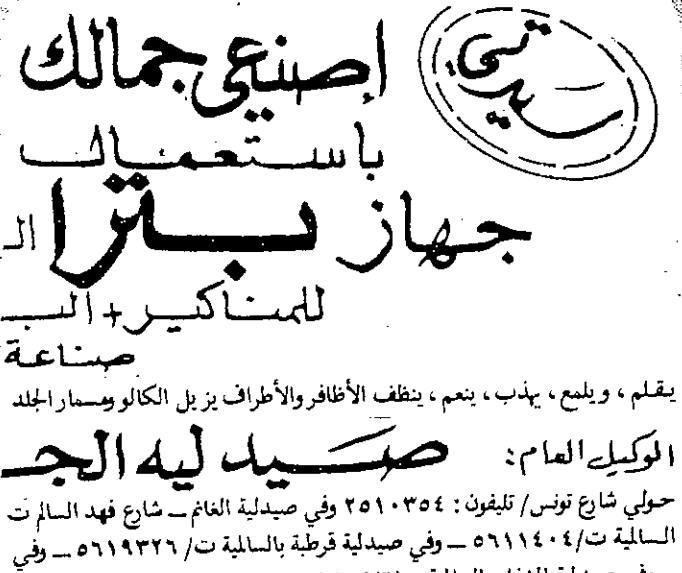 سيدتي
إصنعي جمالك
باستعمال
جهاز بترا الـ
للمناكير + البـ
صناعة
يقلم ، ويلمع ، يهذب ، ينعم ، ينظف الأظافر والأطراف يزيل الكالو ومسمار الجلد
الوكيل العام : صيدليه الجـ
حولي شارع تونس / تليفون : ٢٥١٠٣٥٤ وفي صيدلية الغانم ــ شارع فهد السالم ت
السالمية ت/٥٦١١٤٠٤ ــ وفي صيدلية قرطبة بالسالمية ت/ ٥٦١٩٣٢٦ ــ وفي